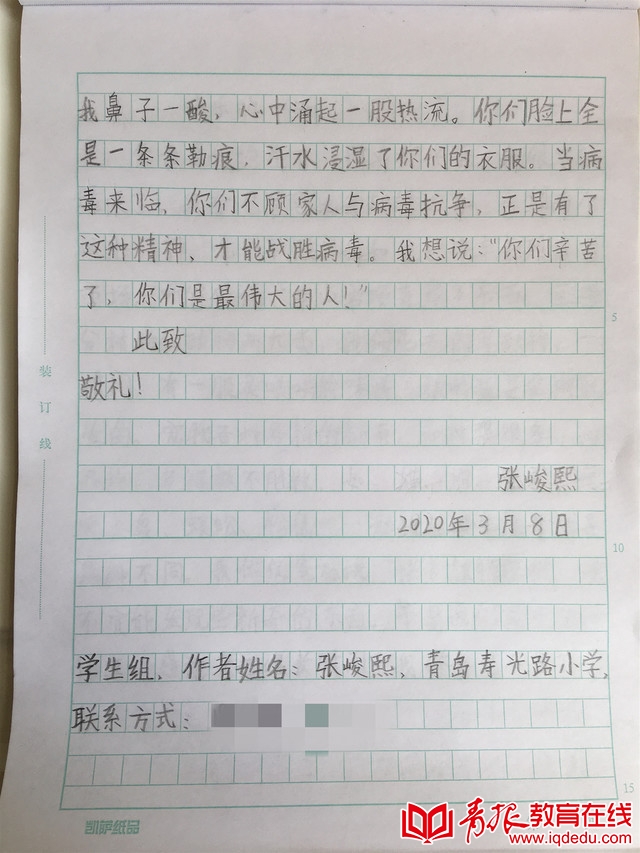 我鼻子一酸，心中涌起一股热流。你们脸上全
是一条条勒痕，汗水浸湿了你们的衣服。当病
毒来临，你们不顾家人与病毒抗争，正是有了
这种精神，才能战胜病毒。我想说：“你们辛苦
了，你们是最伟大的人！”
此致
敬礼！
张峻熙
2020年3月8日
学生组，作者姓名：张峻熙，青岛寿光路小学，
联系方式：
装订线
5
10
15
凯萨纸品
青报教育在线
www.iqdedu.com